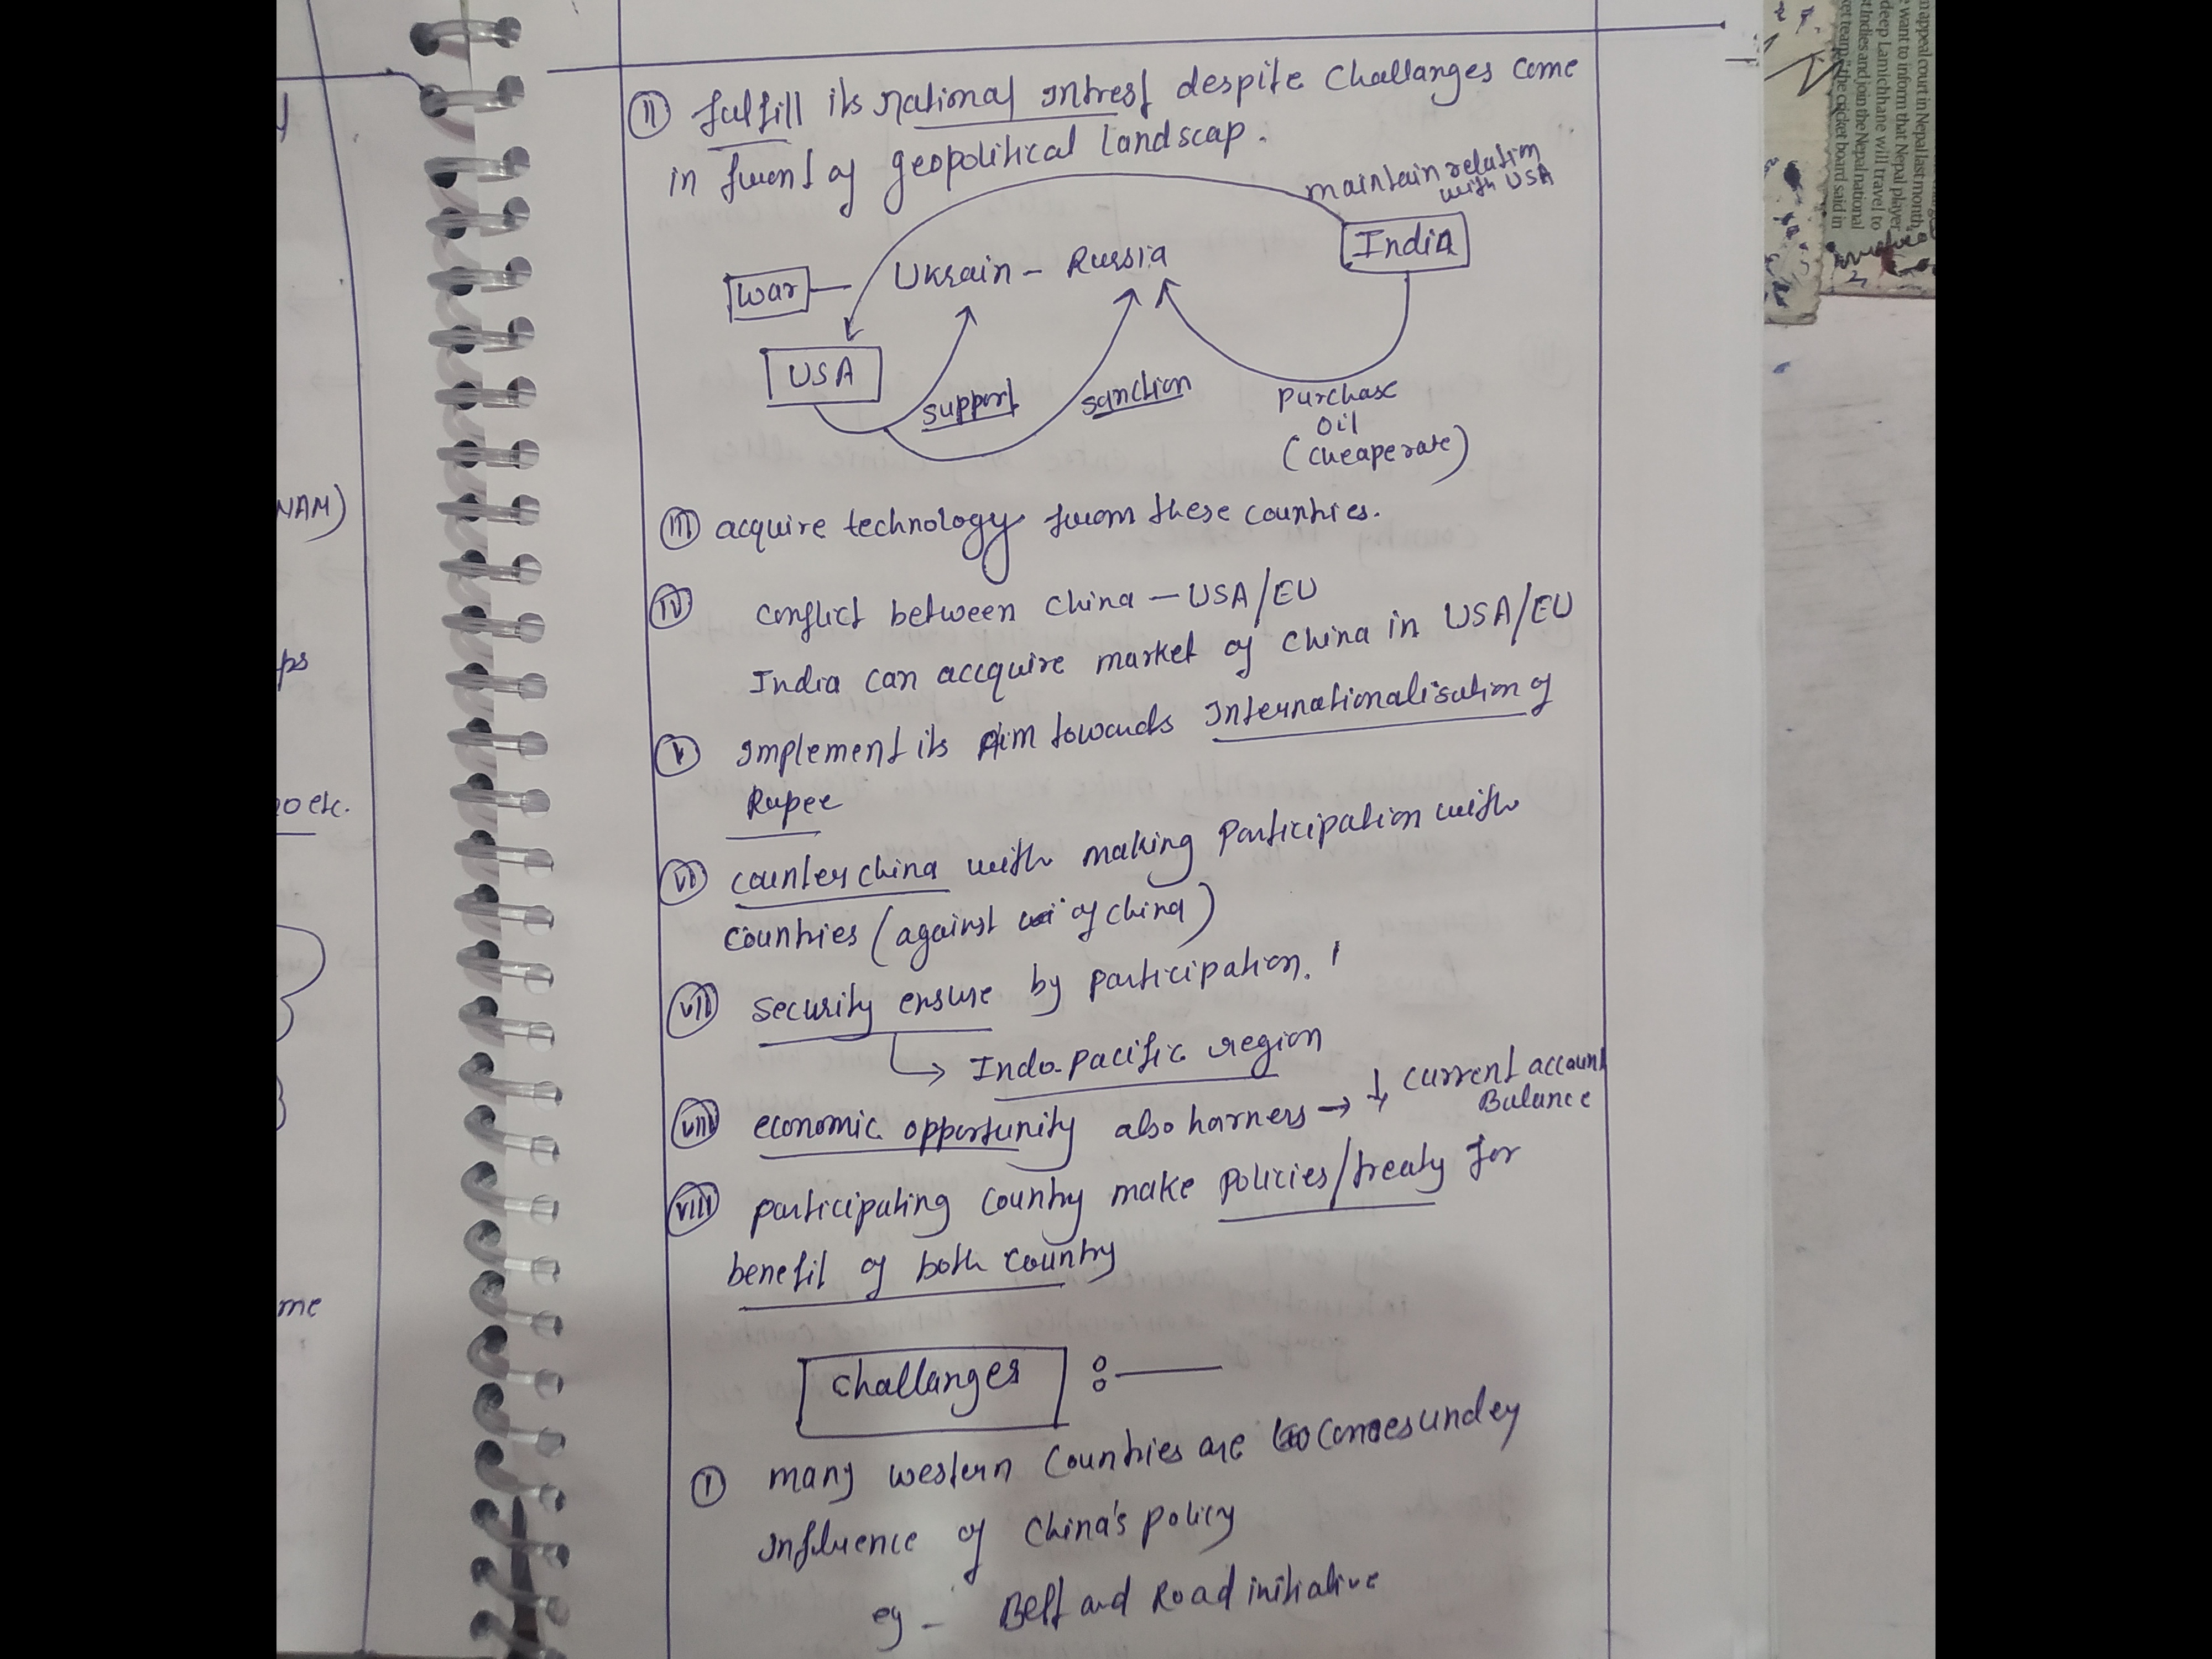 (II) fulfill its national Intrest despite Challanges come
in front of geopolitical landscap.
maintain relation
with USA
India
War — Ukrain - Russia
USA
support
sanction
purchase
oil
(cheape rate)
(III) acquire technology from these countries.
(IV) Conflict between China - USA/EU
India can accquire market of China in USA/EU
(V) Implement its Aim towards Internationalisation of
Rupee
(VI) counter china with making participation with
countries (against of china)
(VII) security ensure by participation.
→ Indo-pacific region
(VIII) economic opportunity also harness → ↓ current account
Balance
(VIII) participating country make policies/treaty for
benefit of both country
Challanges :—
(I) many western Countries are comes under
Influence of China's policy
eg - Belt and Road initiative
NAM)
ps
o etc.
me
n appeal court in Nepal last month,
want to inform that Nepal player
deep Lamichhane will travel to
t Indies and join the Nepal national
ket team," the cricket board said in